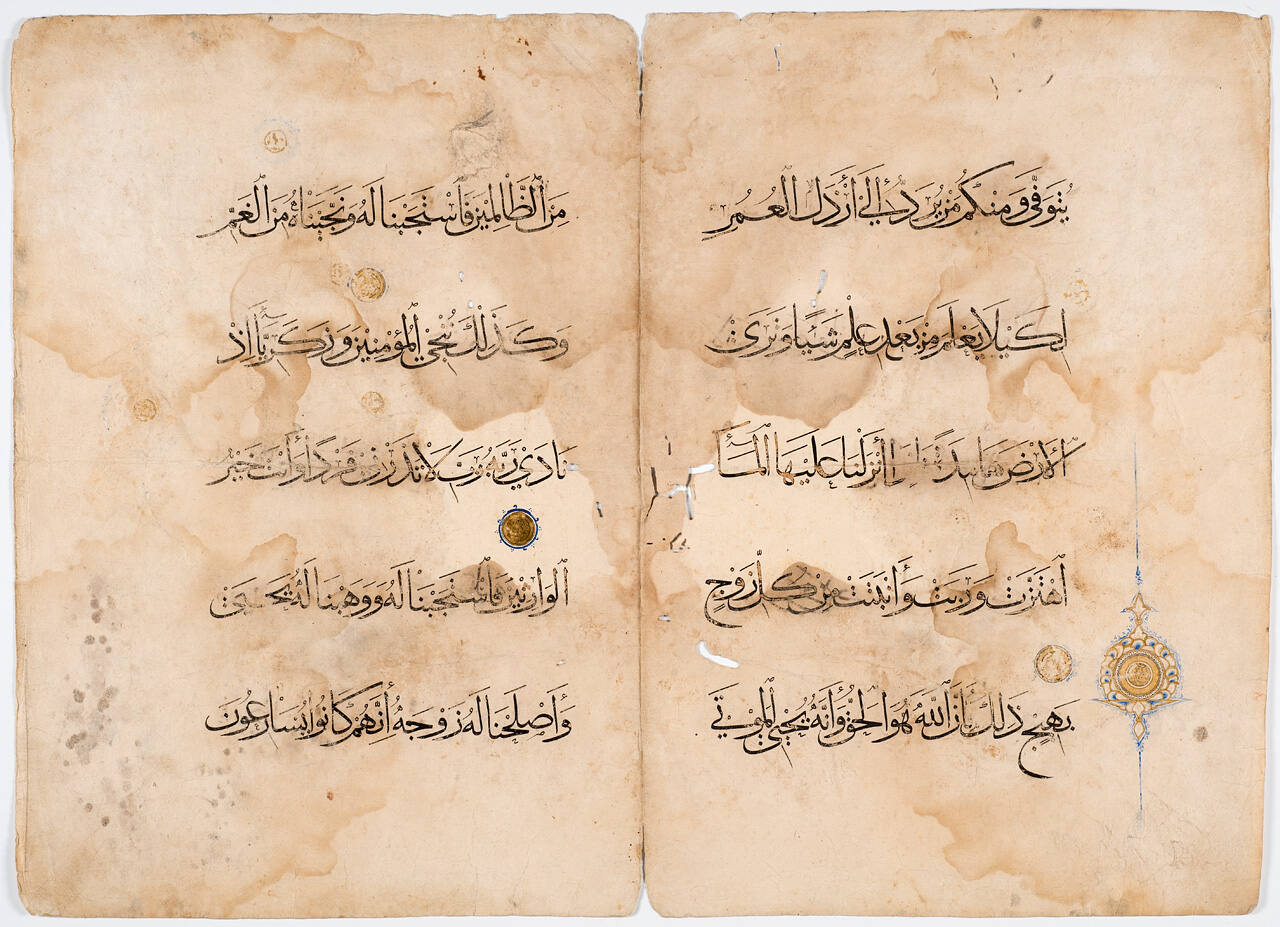 يُتَوَفَّى وَمِنْكُمْ مَنْ يُرَدُّ إِلَى أَرْذَلِ الْعُمُرِ
لِكَيْلَا يَعْلَمَ مِنْ بَعْدِ عِلْمٍ شَيْئًا وَتَرَى
الْأَرْضَ هَامِدَةً فَإِذَا أَنْزَلْنَا عَلَيْهَا الْمَآءَ
اهْتَزَّتْ وَرَبَتْ وَأَنْبَتَتْ مِنْ كُلِّ زَوْجٍ
بَهِيجٍ ذَلِكَ بِأَنَّ اللَّهَ هُوَ الْحَقُّ وَأَنَّهُ يُحْيِي الْمَوْتَى
مِنَ الظَّالِمِينَ فَاسْتَجَبْنَا لَهُ وَنَجَّيْنَاهُ مِنَ الْغَمِّ
وَكَذَلِكَ نُنْجِي الْمُؤْمِنِينَ وَزَكَرِيَّآ إِذْ
نَادَى رَبَّهُ رَبِّ لَا تَذَرْنِي فَرْدًا وَأَنْتَ خَيْرُ
الْوَارِثِينَ فَاسْتَجَبْنَا لَهُ وَوَهَبْنَا لَهُ يَحْيَى
وَأَصْلَحْنَا لَهُ زَوْجَهُ إِنَّهُمْ كَانُوا يُسَارِعُونَ